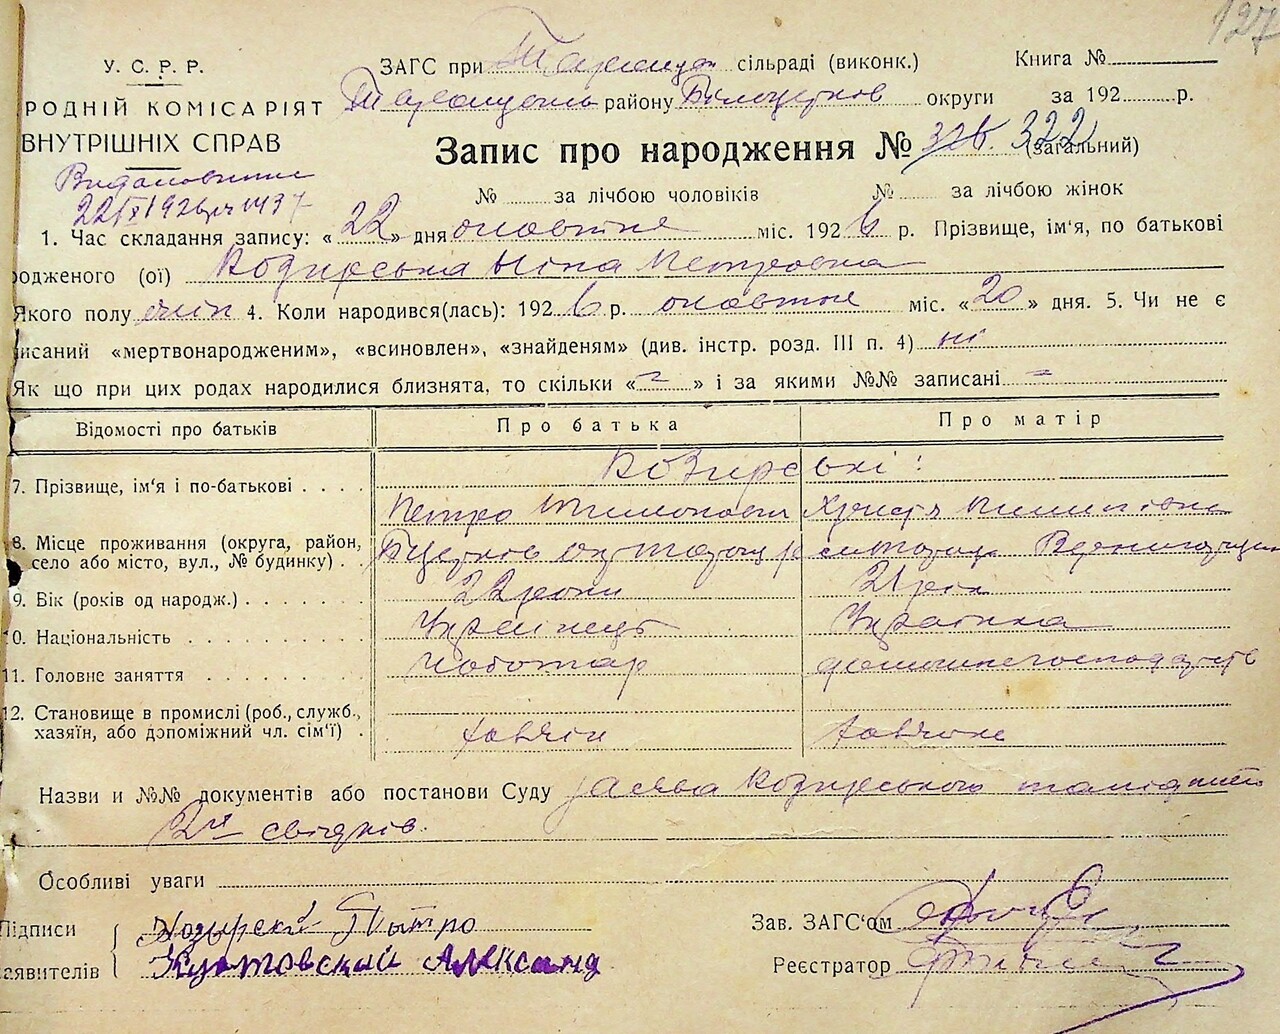 127
У. С. Р. Р.
РОДНІЙ КОМІСАРІЯТ
ВНУТРІШНІХ СПРАВ
22/X 1926 р № 1437
ЗАГС при Таращан сільраді (виконк.) Книга №
Таращансь району Білоцерков округи за 192 р.
Запис про народження № 326. 322 (загальний)
№ за лічбою чоловіків № за лічбою жінок
1. Час складання запису: «22» дня октября міс. 1926 р. Прізвище, ім'я, по батькові
одженого (ої) Козирська Ніна Петровна
Якого полу жін 4. Коли народився(лась): 1926 р. міс. «20» дня. 5. Чи не є
исаний «мертвонародженим», «всиновлен», «знайденям» (див. інстр. розд. III п. 4) ні
Як що при цих родах народилися близнята, то скільки «-» і за якими №№ записані -
Відомості про батьків Про батька Про матір
7. Прізвище, ім'я і по-батькові . . . . Козирські:
Петро Христя Пилипівна
8. Місце проживання (округа, район, село або місто, вул., № будинку) . Бцерків окр
9. Вік (років од народж.) . . . . . . . 22 роки 21 рік
10. Національність . . . . . . . . Українець Українка
11. Головне заняття . . . . . . . Чоботар домашнє господарств
12. Становище в промислі (роб., служб., хазяїн, або допоміжний чл. сім'ї) . хазяїн
Назви и №№ документів або постанови Суду заява Козирського та
2х свідків.
Особливі уваги
Підписи Козырский Пытро Зав. ЗАГС'ом
аявителів Александ Реєстратор